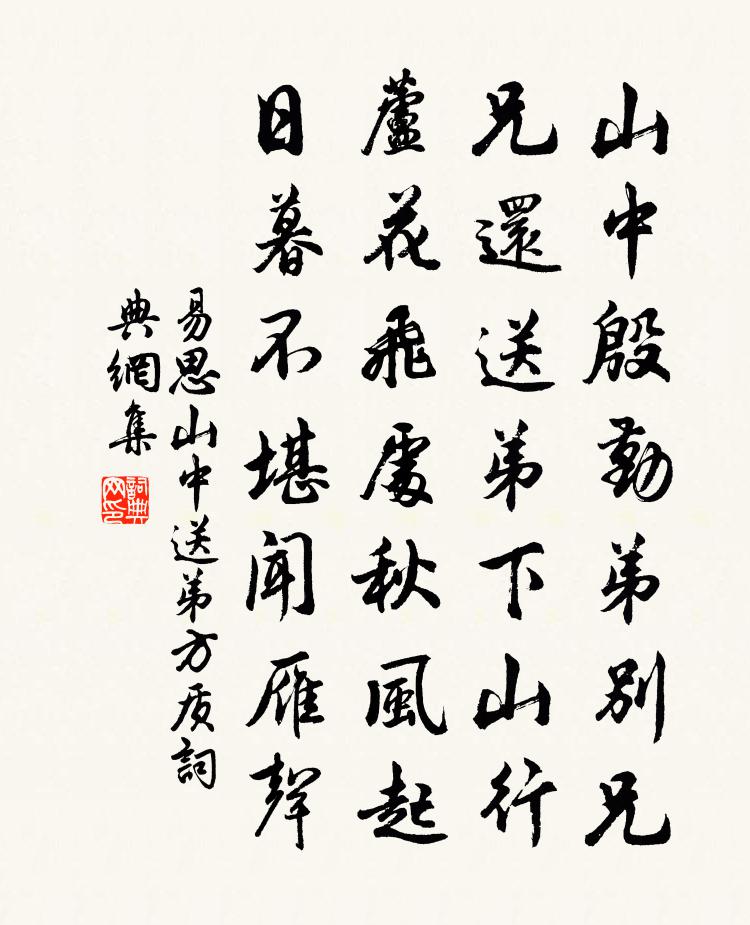 山中殷勤弟別兄
兄還送弟下山行
蘆花飛處秋風起
日暮不堪聞雁聲
易思山中送弟方质詞
典網集
詞典网印